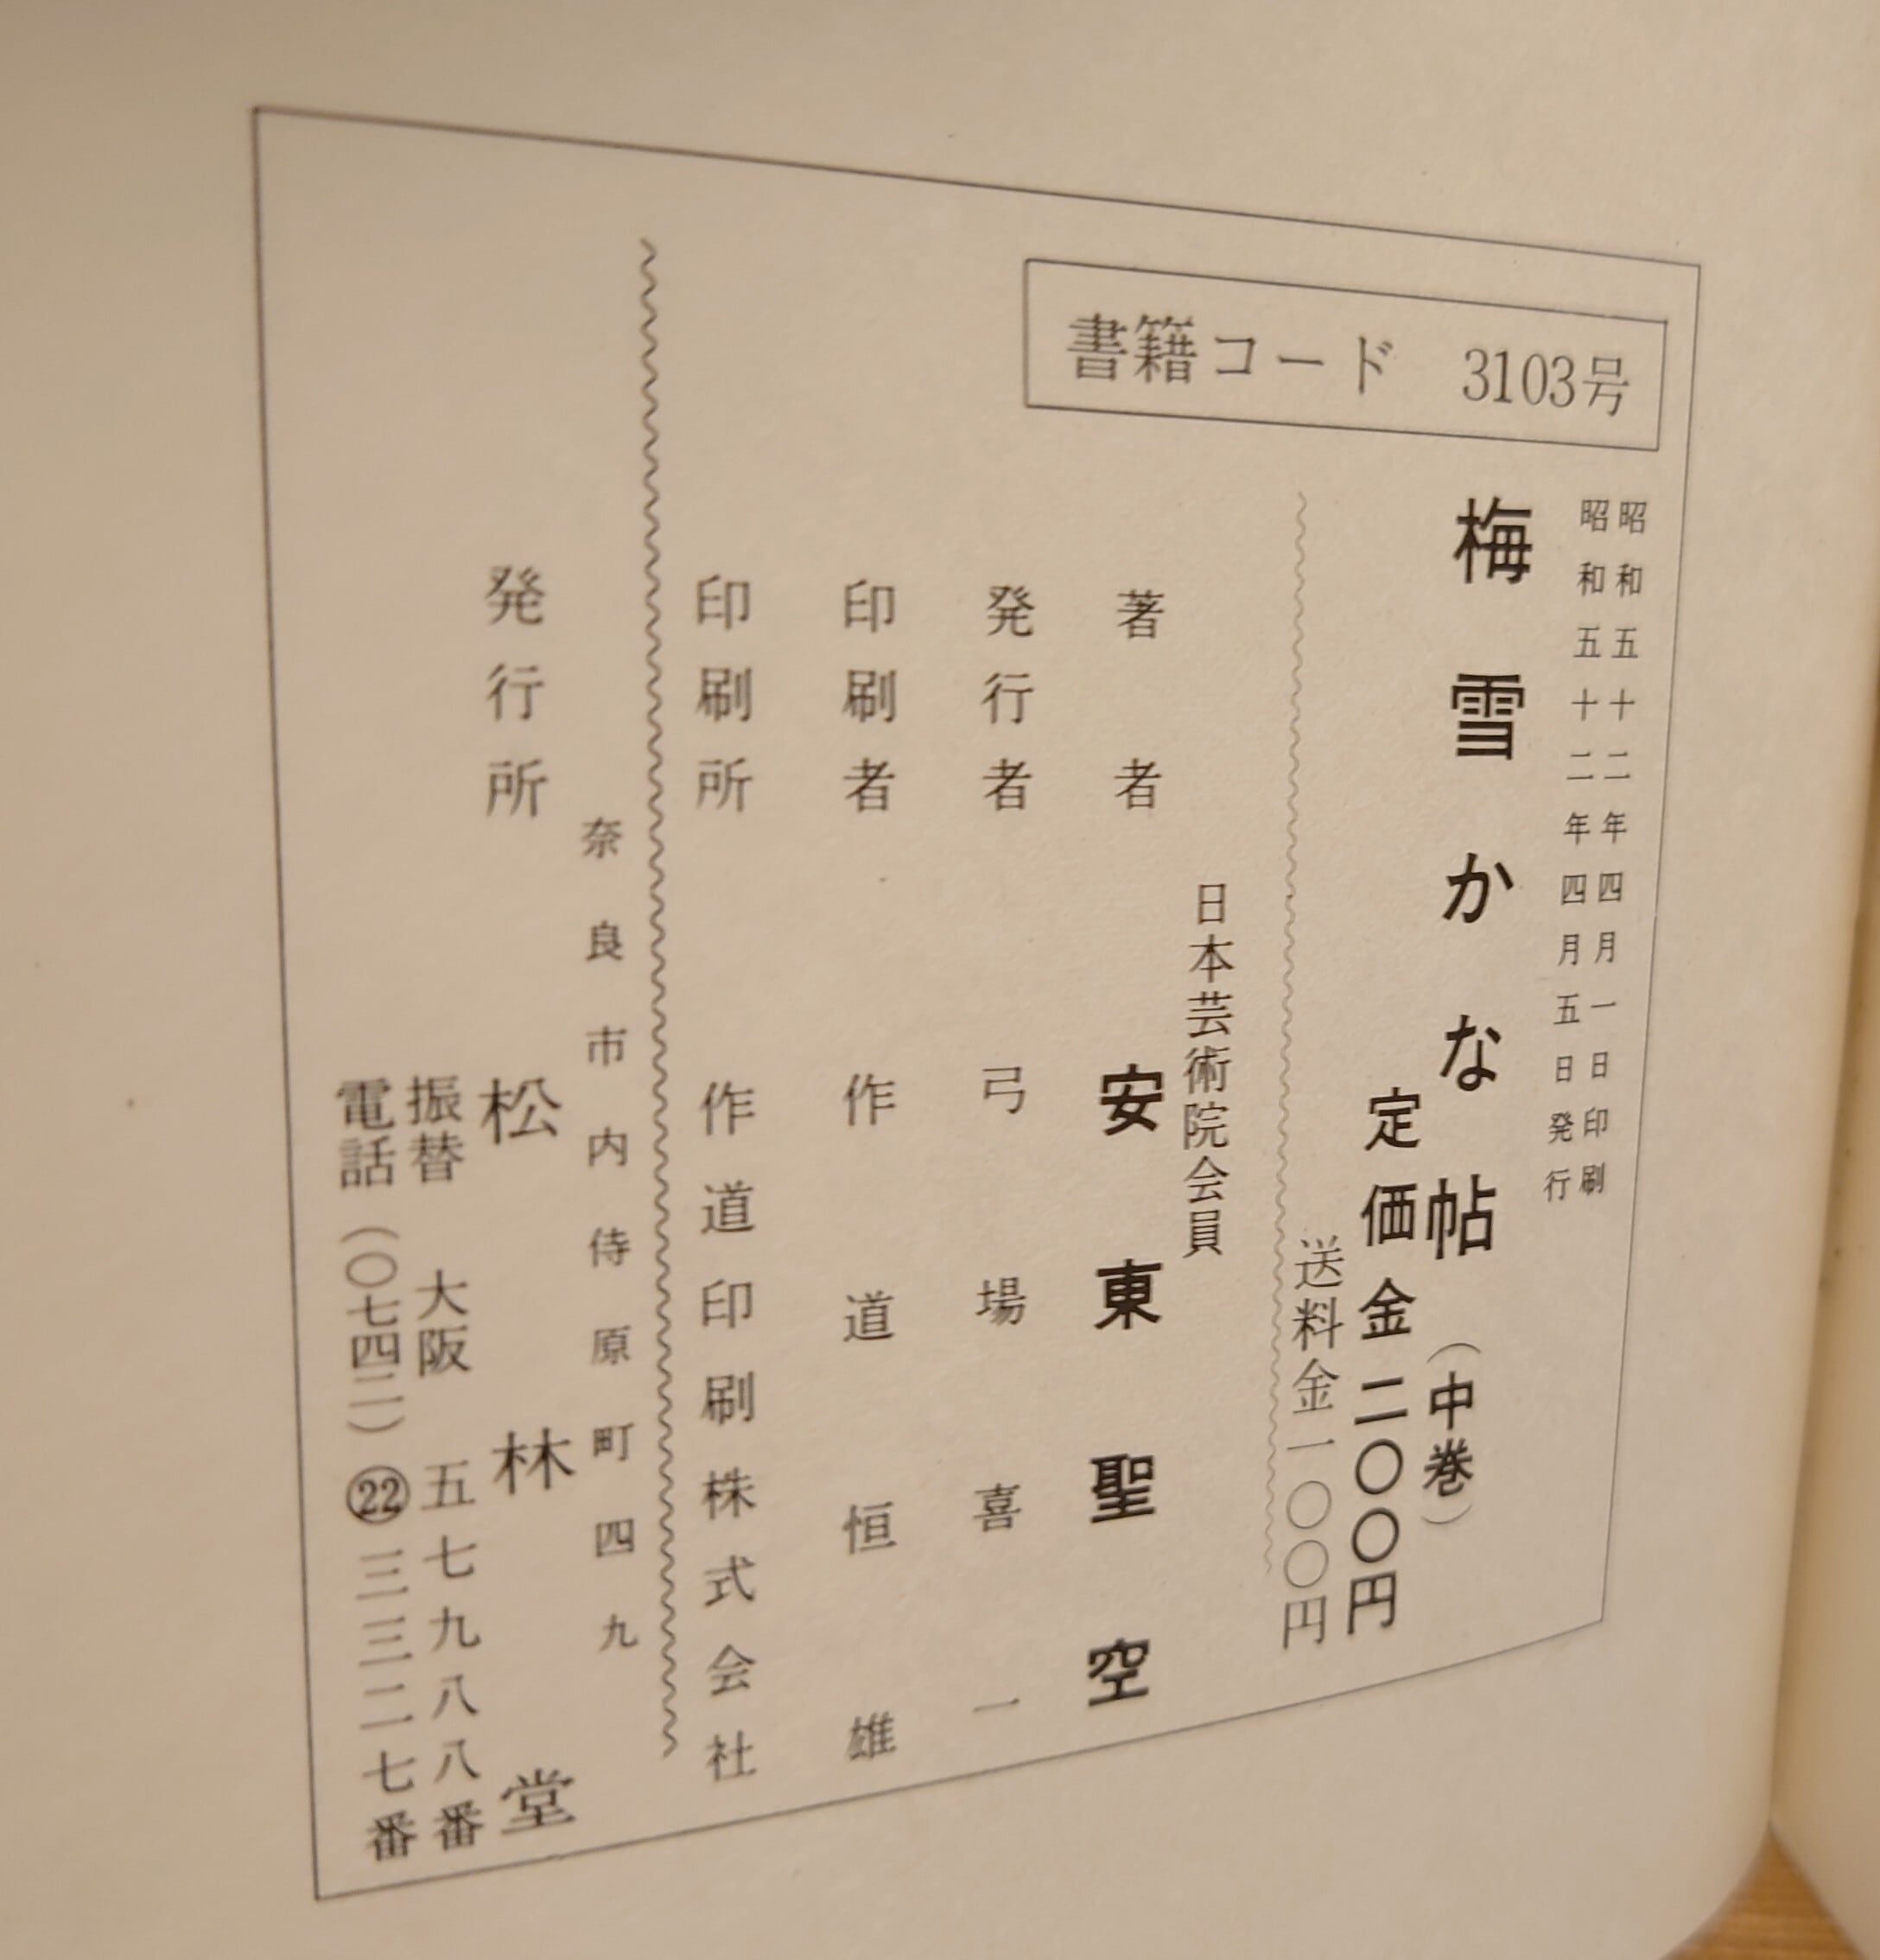 書籍コード 3103号
昭和五十二年四月一日印刷
昭和五十二年四月五日発行
梅雪かな帖（中巻）
定価金二〇〇円
送料金一〇〇円
日本芸術院会員
著者 安東聖空
発行者 弓場喜一
印刷者 作道恒雄
印刷所 作道印刷株式会社
奈良市内侍原町四九
発行所 松林堂
振替 大阪 五七九八八番
電話（〇七四二）㉒三三二七番